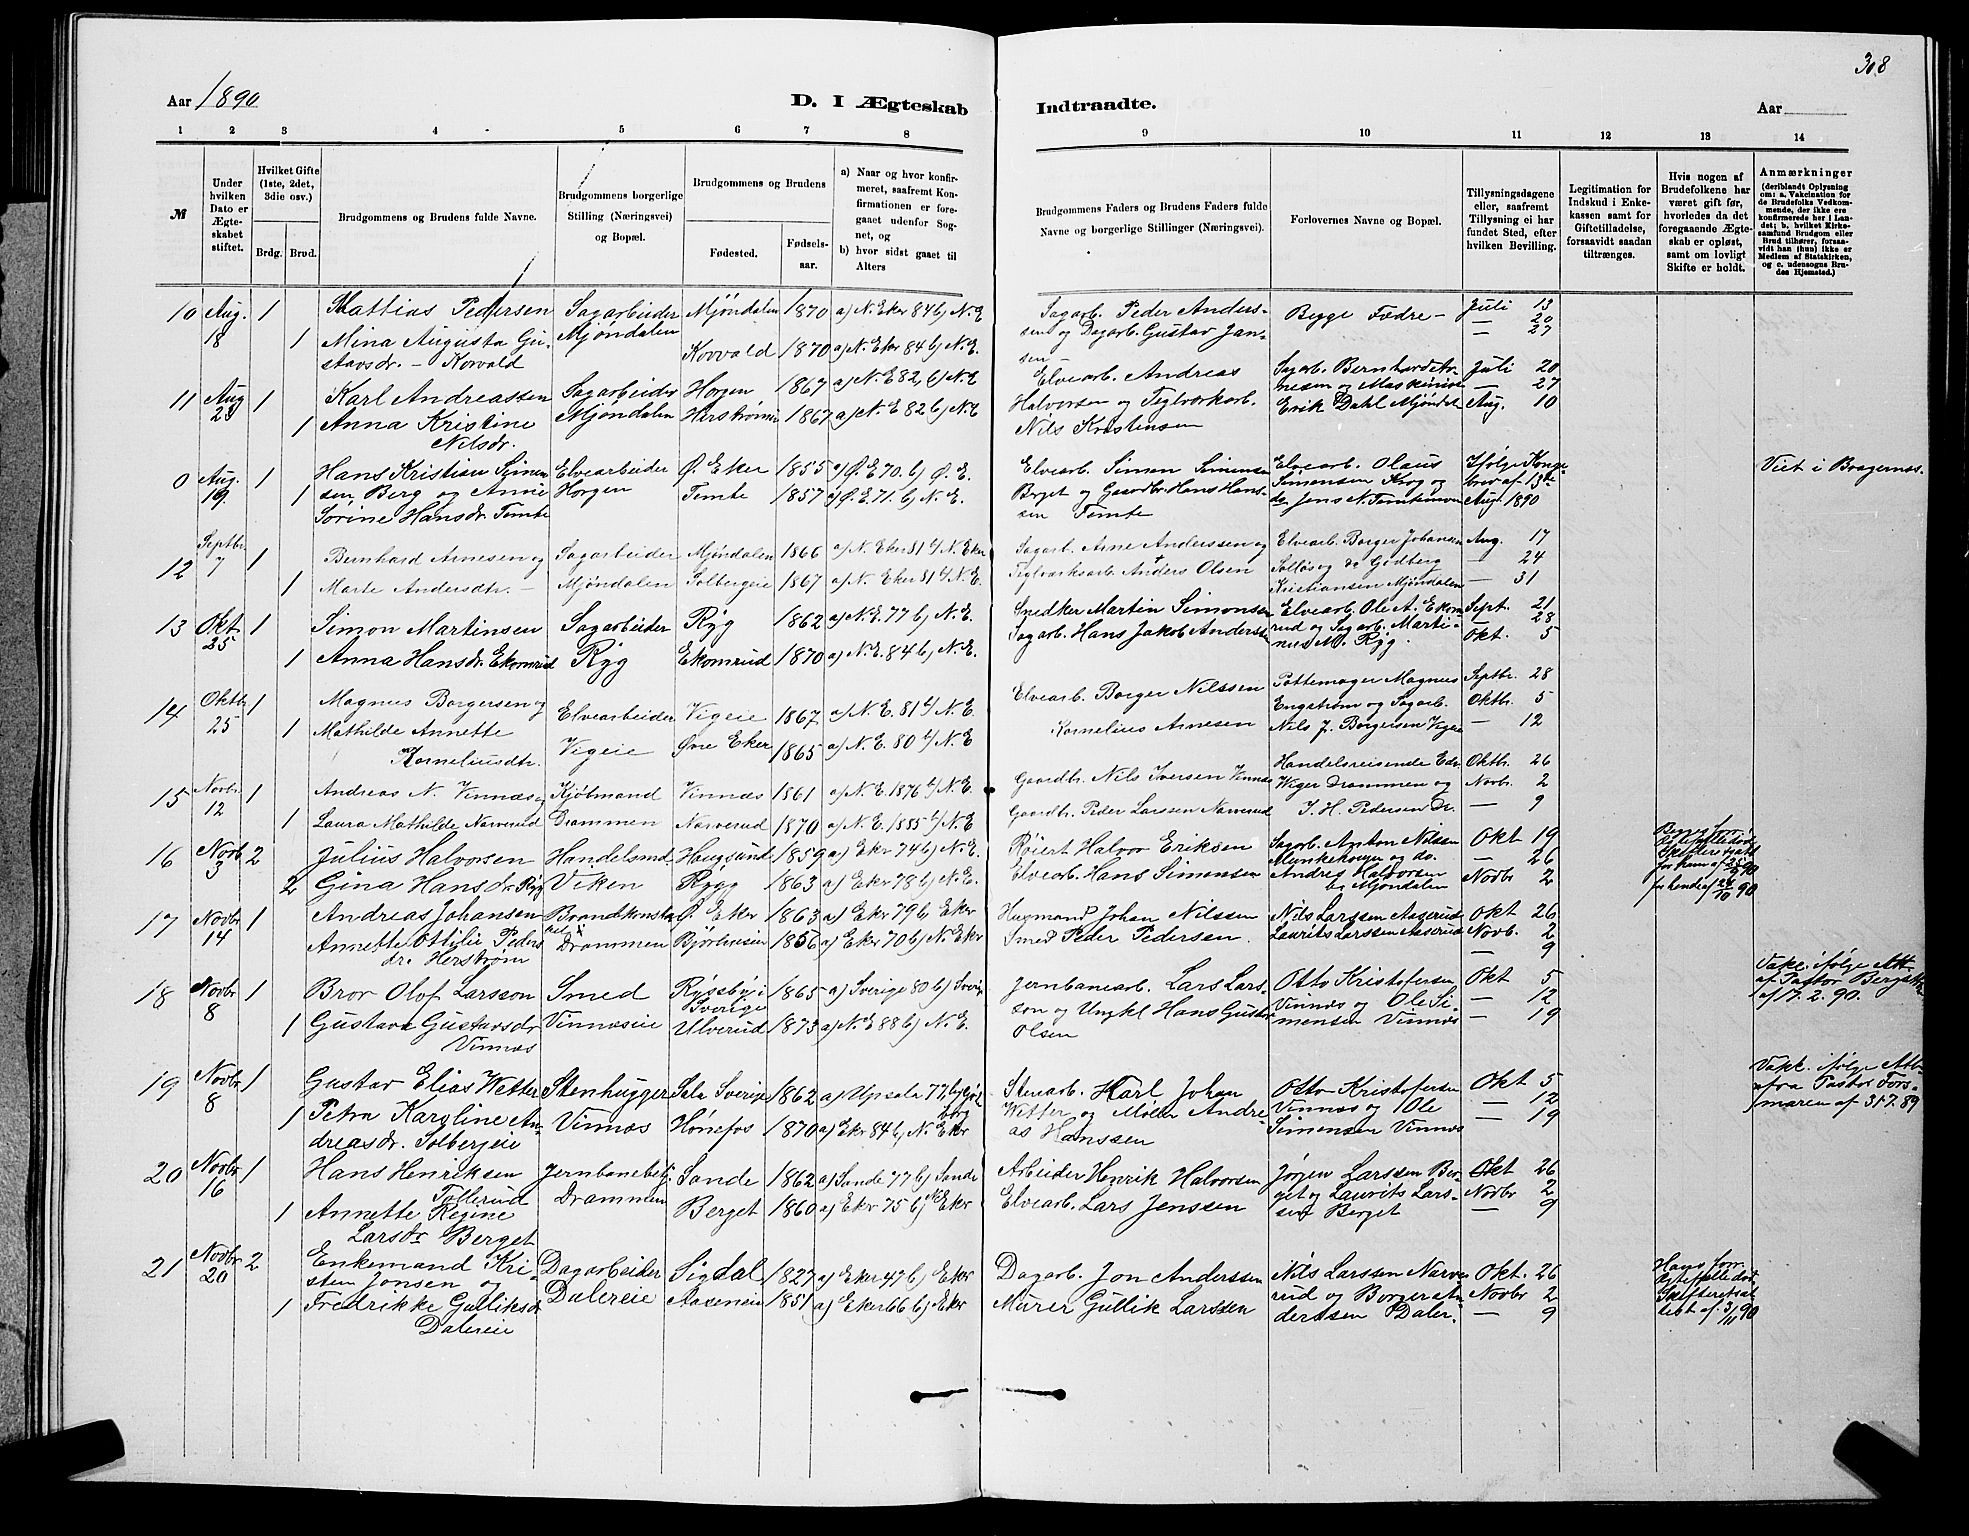 308
Aar 1890
D. I Ægteskab
Indtraadte.
Aar
1 2 3 4 5 6 7 8 9 10 11 12 13 14
№
Under hvilken Dato er Ægteskabet stiftet.
Hvilket Gifte (1ste, 2det, 3die osv.)
Brdg. Brud.
Brudgommens og Brudens fulde Navne.
Brudgommens borgerlige Stilling (Næringsvei) og Bopæl.
Brudgommens og Brudens
Fødested.
Fødsels-aar.
a) Naar og hvor konfirmeret, saafremt Konfirmationen er foregaaet udenfor Sognet, og
b) hvor sidst gaaet til Alters
Brudgommens Faders og Brudens Faders fulde Navne og borgerlige Stillinger (Næringsvei).
Forlovernes Navne og Bopæl.
Tillysningsdagene eller, saafremt Tillysning ei har fundet Sted, efter hvilken Bevilling.
Legitimation for Indskud i Enkekassen samt for Giftetilladelse, forsaavidt saadan tiltrænges.
Hvis nogen af Brudefolkene har været gift før, hvorledes da det foregaaende Ægteskab er opløst, samt om lovligt Skifte er holdt.
Anmærkninger
(deriblandt Oplysning om: a. Vakcination for de Brudefolks Vedkommende, der ikke ere konfirmerede her i Landet; b. hvilket Kirkesamfund Brudgom eller Brud tilhører, forsaavidt han (hun) ikke er Medlem af Statskirken, og c. udensogns Brudes Hjemsted.)
10 Aug. 18 1 Mattias Pedersen Sagarbeider Mjøndalen 1870 a) N. Eker 84 b) N. E
1 Mina Augusta Gustavsdr. - Korvald Mjøndalen Korvald 1870 a) N. Eker 84 b) N. E.
Sagarb. Peder Anderssen og Dagarb. Gustav Jansen - Begge Fædre - Juli 13 - 20 - 27
11 Aug 23 1 Karl Andreassen Sagarbeider Horgen 1867 a) N. E 82, b) N. E
1 Anna Kristine Nilsdr. Mjøndalen 1867 a) N. E 82 b) N. E
Elvearb. Andreas Halvorsen og Teglværkarb. Nils Kristensen
Sagarb. Bernhard Arnesen og Erik Dahl Juli 20 - 27 Aug. 10
0 Aug. 19 1 Hans Kristian Simensen Berg og Anne Elvearbeider Ø. Eker 1855 a) Ø. E 70. b) Ø. E.
1 Sørine Hansdr. Temte Horgen Temte 1857 a) Ø. E. 71. b) N. E.
Elvearb. Simen Simensen Berget og Gaardbr. Hans Hanssen Temte
Elvearb. Olaus Simensen Krog og Ifølge Kongebrev af 13de Aug. 1890 Viet i Bragernes.
12 Septbr. 7 1 Bernhard Arnesen og Sagarbeider Mjøndalen 1866 a) N. Eker 81 b) N. Eker
1 Marte Andersdtr. - Mjøndalen Solbergeie 1867 a) N. Eker 81 b) N. E.
Sagarb. Arne Anderssen og Teglværksarb. Anders Olsen
Elvearb. Borger Johansen Kristiansen Mjøndalen Aug. 17 - 24 - 31
13 Okt 25 1 Simon Martinsen Sagarbeider Ryg 1862 a) N. E. 77 b) N. E.
1 Anna Hansdr. Ekornrud Ryg Ekornrud 1870 a) N. E. 84 b) N. E.
Snedker Martin Simonsen Sagarb. Hans Jakob Anderssen
Elvearb. Ole A. Ekornrud og Sagarb. Martinus M. Ryg. Sept. 21 28 Okt. 5
14 Oktbr. 25 1 Magnus Borgersen og Elvearbeider Vigeie 1867 a) N. E. 81 b) N. E.
1 Mathilde Annette Kornelinsdtr. Vigeie Øvre Eker 1865 a) N. E. 80 b) N. E
Elvearb. Borger Nilssen Kornelius Arnesen
Pottemager Magnus Engstrøm og Sagarb. Nils J. Borgersen Vigeie Septbr. 28 Oktbr. 5 - 12
15 Novbr. 12 1 Andreas N. Vinnæs og Kjøbmand Vinnæs 1861 a) N. E. 1876 b) N. E.
1 Laura Mathilde Narverud Drammen Narverud 1870 a) N. E. 1885 b) N. E
Gaardbr. Nils Iversen Vinnæs Gaardbr. Peder Larssen Narverud
Handelsreisende Edv. Wiger Drammen og J. H. Pedersen Dr. Oktbr. 26 Novbr. 2 - 9
16 Novb. 3 2 Julius Halvorsen Handelsmd. Haugsund 1859 a) Eker 74 b) N. E.
2 Gina Hansdr. Ryg Viken Rygg 1863 a) Eker 78 b) N. E.
Røiert Halvor Eriksen Elvearb. Hans Simensen
Sagarb. Anton Nilsen og do. Andres Halvorsen Mjøndalen Okt 19 - 26 Novbr 2
17 Novbr. 14 1 Andreas Johansen Brandkonstabel i Ø. Eker 1863 a) Eker 79 b) Eker
Annette Ottilie Pedersdr. Herstrøm Drammen 1856 a) Eker 70 b) N. Eker
Husmand Johan Nilssen Smed Peder Pedersen.
Nils Larssen Aaserud Laurits Larssen Aaserud Okt 26 Novb. 2 9
18 Novbr 8 1 Bror Olof Larsson Smed Ryssby i Sverige 1865 a) Sverige 80 b) Sverige
1 Gustava Gustavsdr Vinnæs Vinnæseie Ulverud 1873 a) N. E 88 b) N. E.
Jernbanearb. Lars Larsson og Ungkl Hans Gustav Olsen
Otto Kristofersen Vinnæs og Ole Simensen Vinnæs Okt 5 - 12 - 19
Vakc. ifølge Att. af Pastor af 17. 2. 90.
19 Novbr. 8 1 Gustav Elias Wetter Stenhugger Sala Sverige 1862 a) Upsala 77, b) Gøteborg
1 Petra Karoline Andreasdr. Solbergeie Vinnæs Hønefos 1870 a) Eker 84 b) N. Eker
Stenarb. Karl Johan Witter og Møller Andreas Hanssen
Otto Kristofersen Vinnæs og Ole Simensen Vinnæs Okt 5 - 12 - 19
Vakc. ifølge Att. fra Pastor Forsmaren af 31.7.89
20 Novbr 16 1 Hans Henriksen Tollerud Jernbanebetj. Sande 1862 a) Sande 77 b) Sande
1 Annette Regine Larsdr Berget Drammen Berget 1860 a) Eker 75 b) N. Eker
Arbeider Henrik Halvorsen Elvearb. Lars Jenssen
Jørgen Larssen Berget og Laurits Larssen Berget Okt 26 Novbr 2 - 9
21 Novbr. 20 2 Enkemand Kristen Jonsen og Dagarbeider Sigdal 1827 a) Eker 47 b) Eker
1 Fredrikke Gulliksdr. Dalereie Dalereie Aaseneie 1851 a) Eker 66 b) Eker
Dagarb. Jon Anderssen Murer Gullik Larssen
Nils Larssen Narverud og Borger Anderssen Daler. Okt. 26 Novbr 2 - 9
Hans forr. Ægtefælle død, Skifteretsattest af 3/11 90